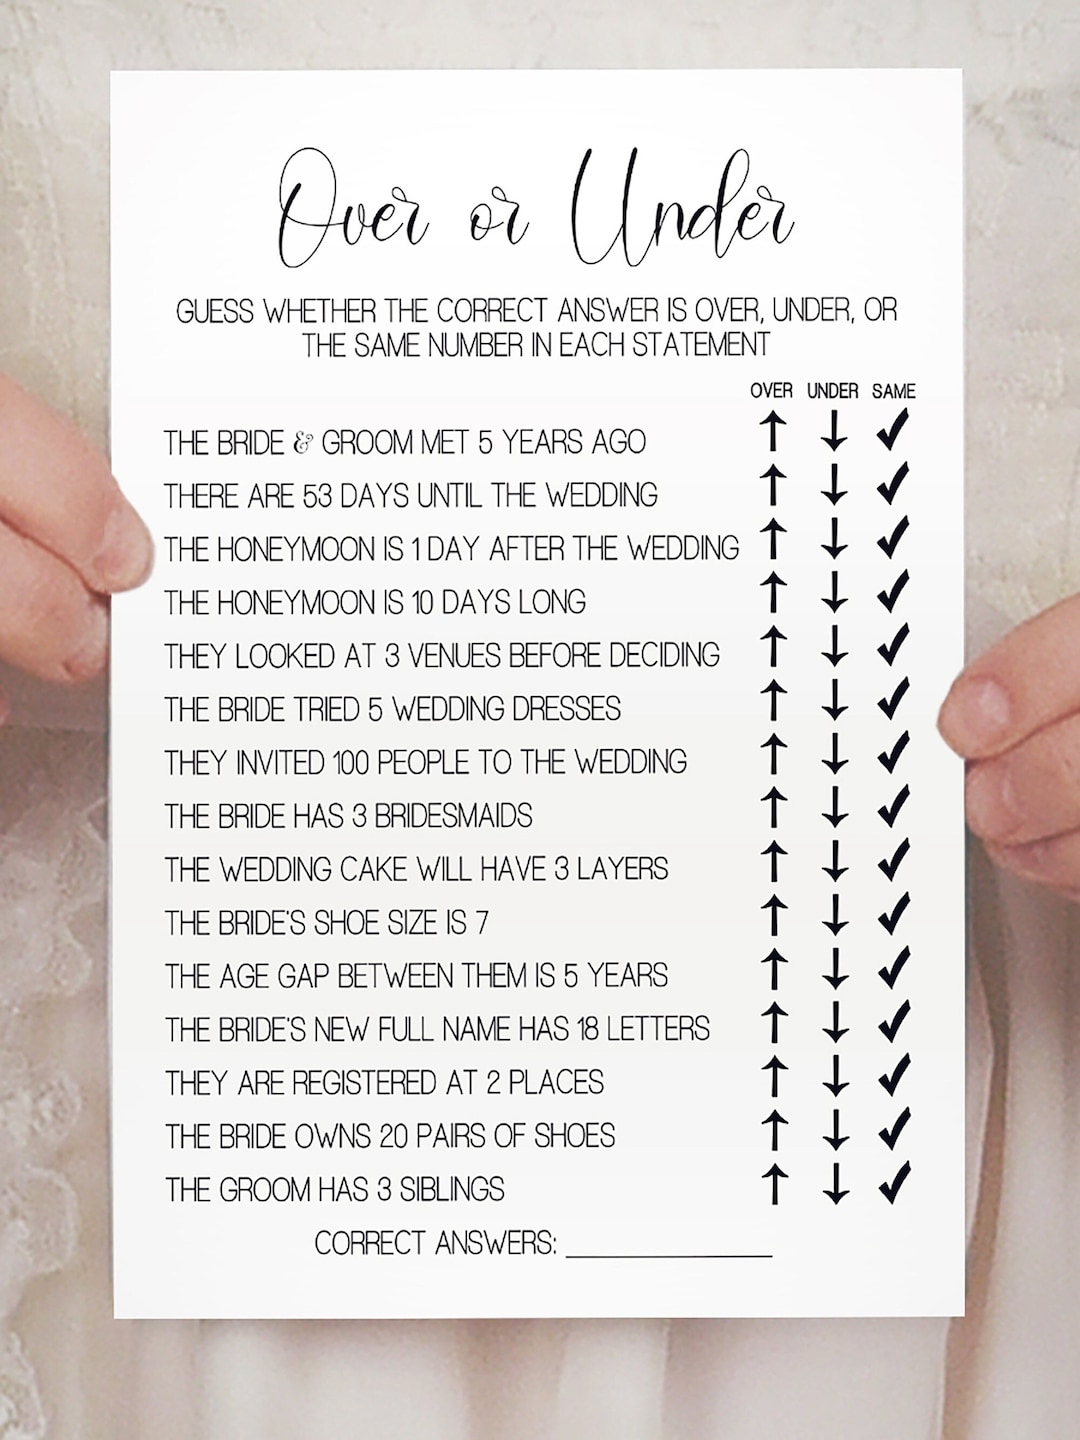 Over or Under
GUESS WHETHER THE CORRECT ANSWER IS OVER, UNDER, OR
THE SAME NUMBER IN EACH STATEMENT
OVER UNDER SAME
THE BRIDE & GROOM MET 5 YEARS AGO
THERE ARE 53 DAYS UNTIL THE WEDDING
THE HONEYMOON IS 1 DAY AFTER THE WEDDING
THE HONEYMOON IS 10 DAYS LONG
THEY LOOKED AT 3 VENUES BEFORE DECIDING
THE BRIDE TRIED 5 WEDDING DRESSES
THEY INVITED 100 PEOPLE TO THE WEDDING
THE BRIDE HAS 3 BRIDESMAIDS
THE WEDDING CAKE WILL HAVE 3 LAYERS
THE BRIDE'S SHOE SIZE IS 7
THE AGE GAP BETWEEN THEM IS 5 YEARS
THE BRIDE'S NEW FULL NAME HAS 18 LETTERS
THEY ARE REGISTERED AT 2 PLACES
THE BRIDE OWNS 20 PAIRS OF SHOES
THE GROOM HAS 3 SIBLINGS
CORRECT ANSWERS: